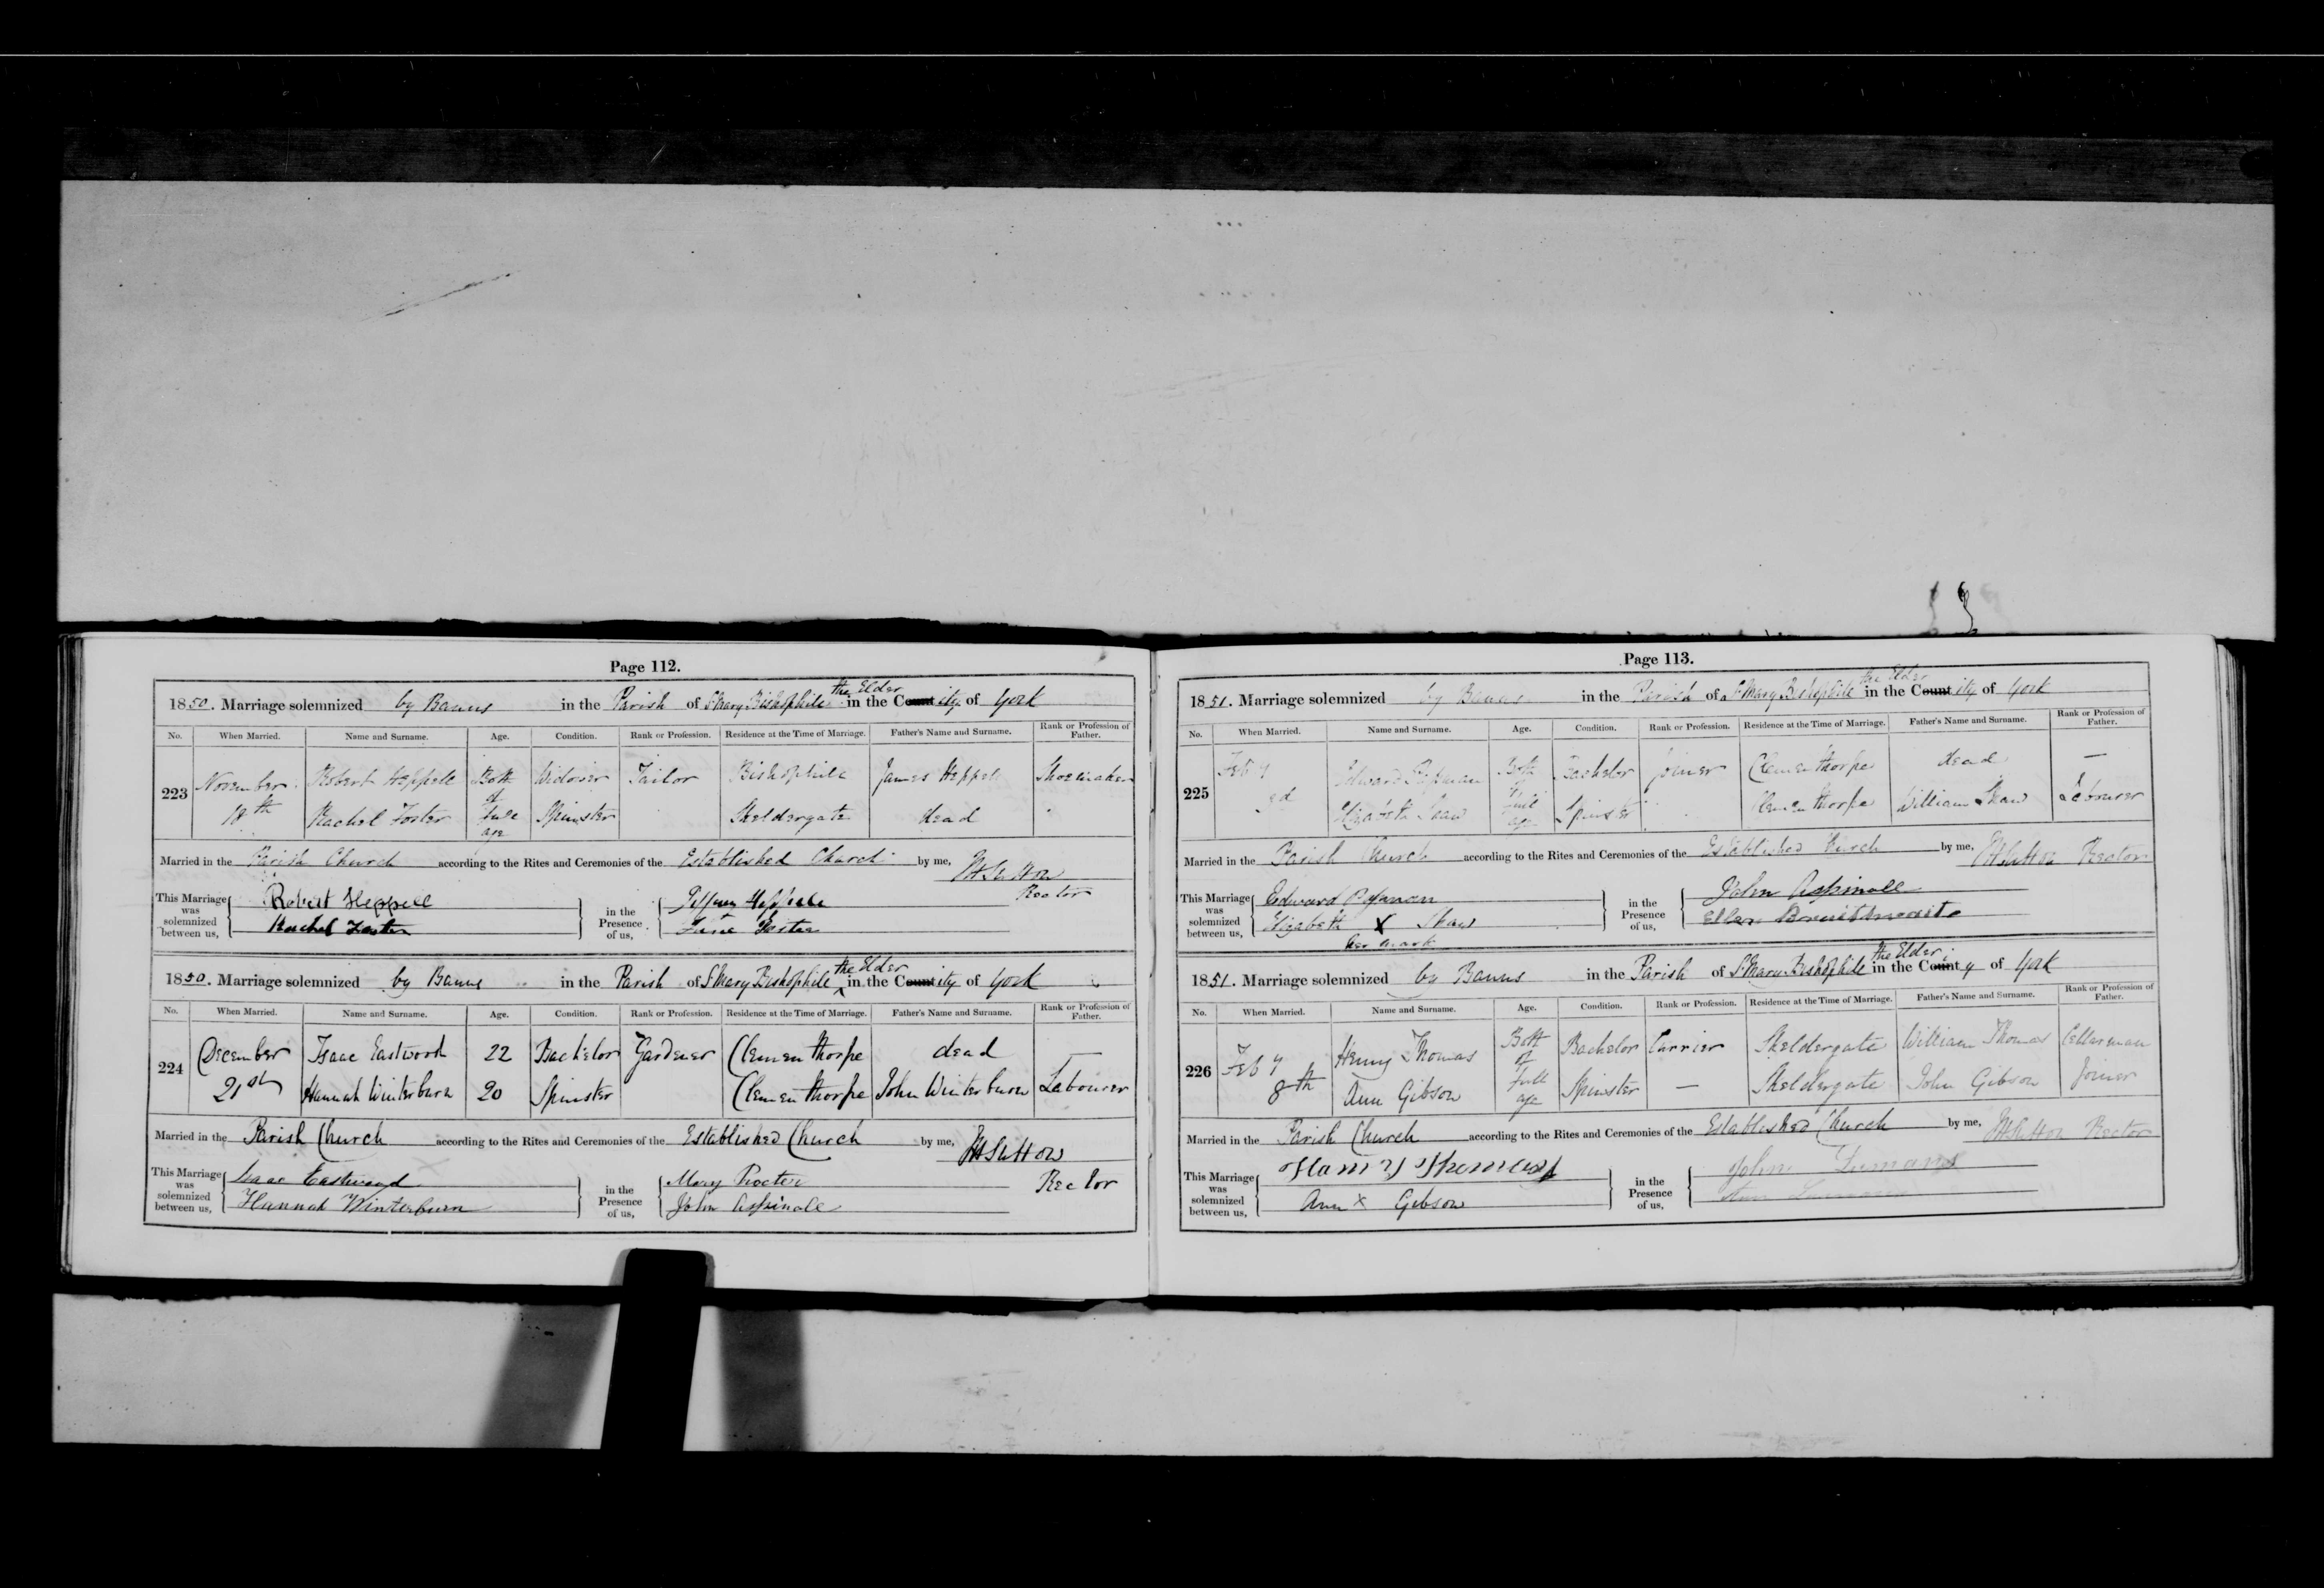 Page 112.
1850. Marriage solemnized by Banns in the Parish of St Mary Bishophill the Elder in the County ity of York
No. When Married. Name and Surname. Age. Condition. Rank or Profession. Residence at the Time of Marriage. Father's Name and Surname. Rank or Profession of Father.
223 November 18th Robert Heppell Both of full age Widower Tailor Bishophill James Heppell Shoemaker
Rachel Foster Spinster Skeldergate dead
Married in the Parish Church according to the Rites and Ceremonies of the Established Church by me, Rector
This Marriage was solemnized between us, Robert Heppell in the Presence of us, Heppell
Rachel Foster Jane Foster
1850. Marriage solemnized by Banns in the Parish of St Mary Bishophill the Elder in the County ity of York
No. When Married. Name and Surname. Age. Condition. Rank or Profession. Residence at the Time of Marriage. Father's Name and Surname. Rank or Profession of Father.
224 December 21st Isaac Eastwood 22 Bachelor Gardener Clementhorpe dead —
Hannah Winterburn 20 Spinster Clementhorpe John Winterburn Labourer
Married in the Parish Church according to the Rites and Ceremonies of the Established Church by me, Sutton Rector
This Marriage was solemnized between us, Isaac Eastwood in the Presence of us, Mary Procter
Hannah Winterburn John Aspinall
Page 113.
1851. Marriage solemnized by Banns in the Parish of St Mary Bishophill the Elder in the County ity of York
No. When Married. Name and Surname. Age. Condition. Rank or Profession. Residence at the Time of Marriage. Father's Name and Surname. Rank or Profession of Father.
225 Feby Edward Both of full age Bachelor Joiner Clementhorpe dead —
Elizabeth Shaw Spinster Clementhorpe William Shaw Labourer
Married in the Parish Church according to the Rites and Ceremonies of the Established Church by me, Sutton Rector
This Marriage was solemnized between us, Edward in the Presence of us, John Aspinall
Elizabeth X Shaw Ellen
her mark
1851. Marriage solemnized by Banns in the Parish of St Mary Bishophill the Elder in the County of York
No. When Married. Name and Surname. Age. Condition. Rank or Profession. Residence at the Time of Marriage. Father's Name and Surname. Rank or Profession of Father.
226 Feby 8th Henry Thomas Both of full age Bachelor Currier Skeldergate William Thomas Cellarman
Ann Gibson Spinster — Skeldergate John Gibson Joiner
Married in the Parish Church according to the Rites and Ceremonies of the Established Church by me, Sutton Rector
This Marriage was solemnized between us, Thomas in the Presence of us, John
Ann X Gibson